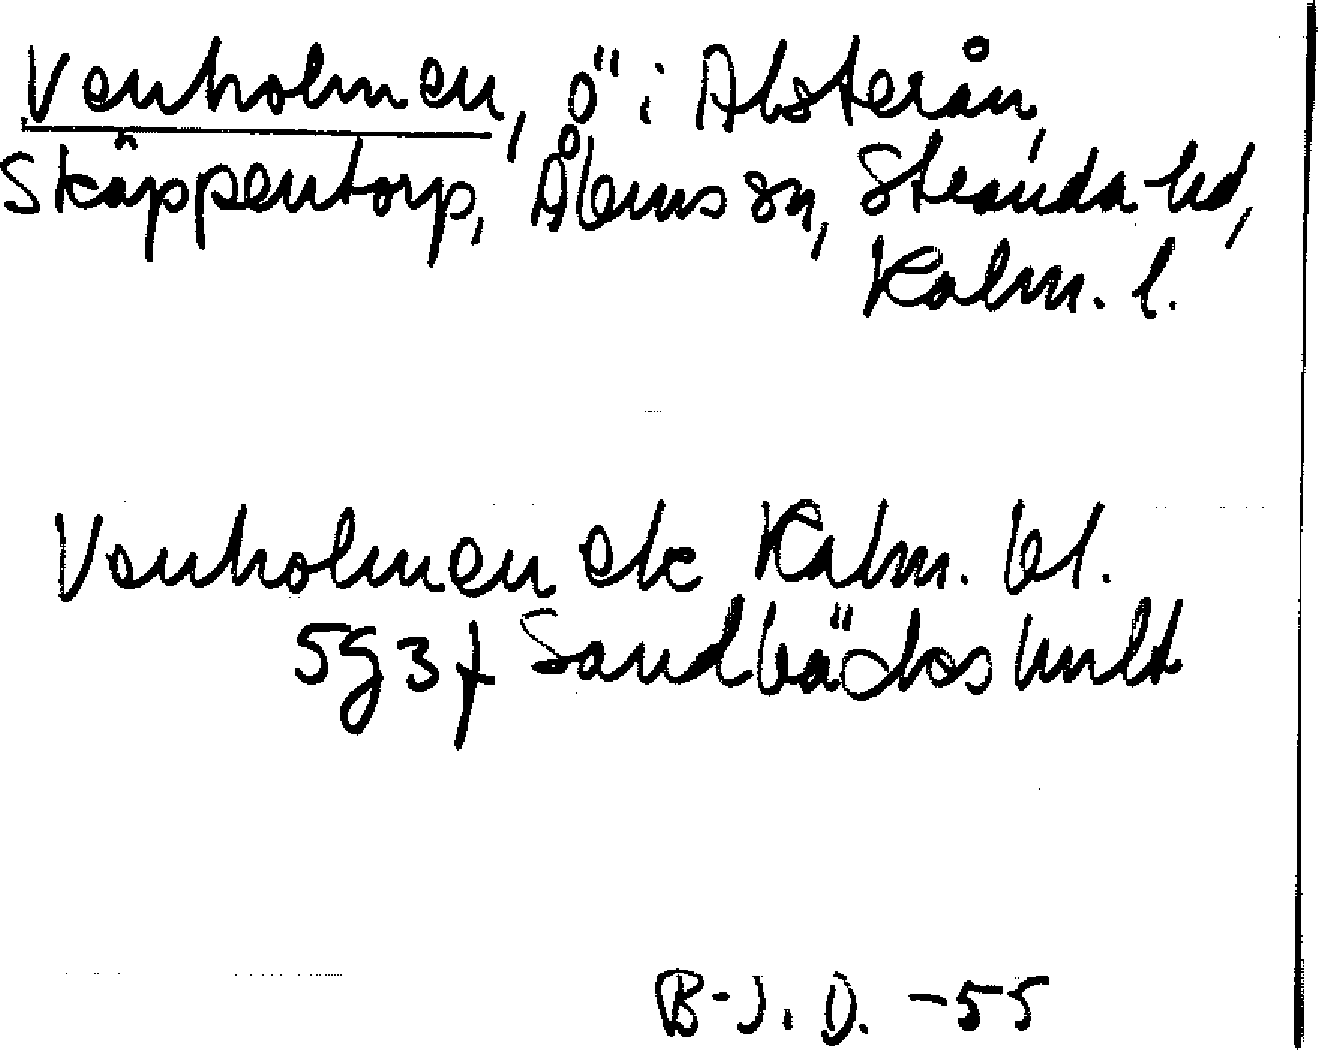 Vanholmen, ö i Alsterån,
Skäppentorp, Ålems sn, Stranda hd,
Kalm. l.
Vanholmen ek Kalm. bl.
5g3f Sandbäckshult
B-J. D. -55